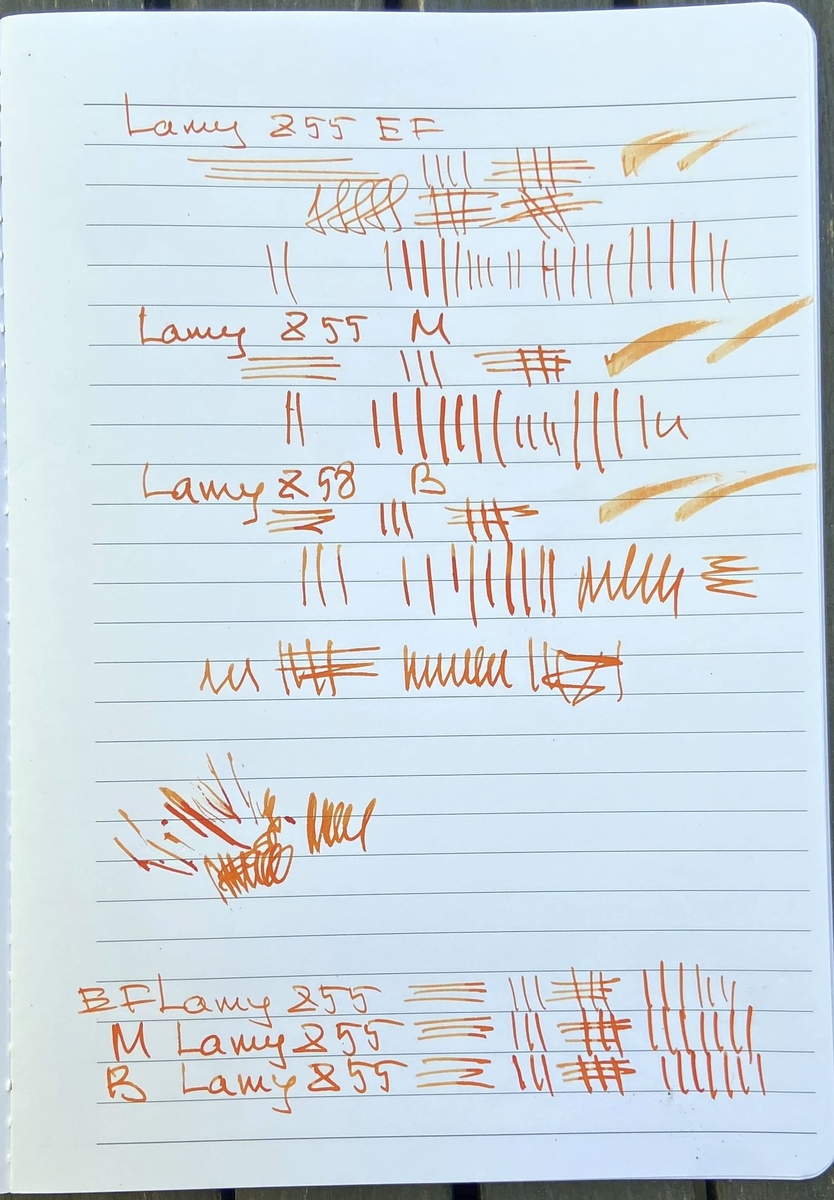 Lamy Z55 EF
Lamy Z55 M
Lamy Z58 B
EF Lamy Z55
M Lamy Z55
B Lamy Z55